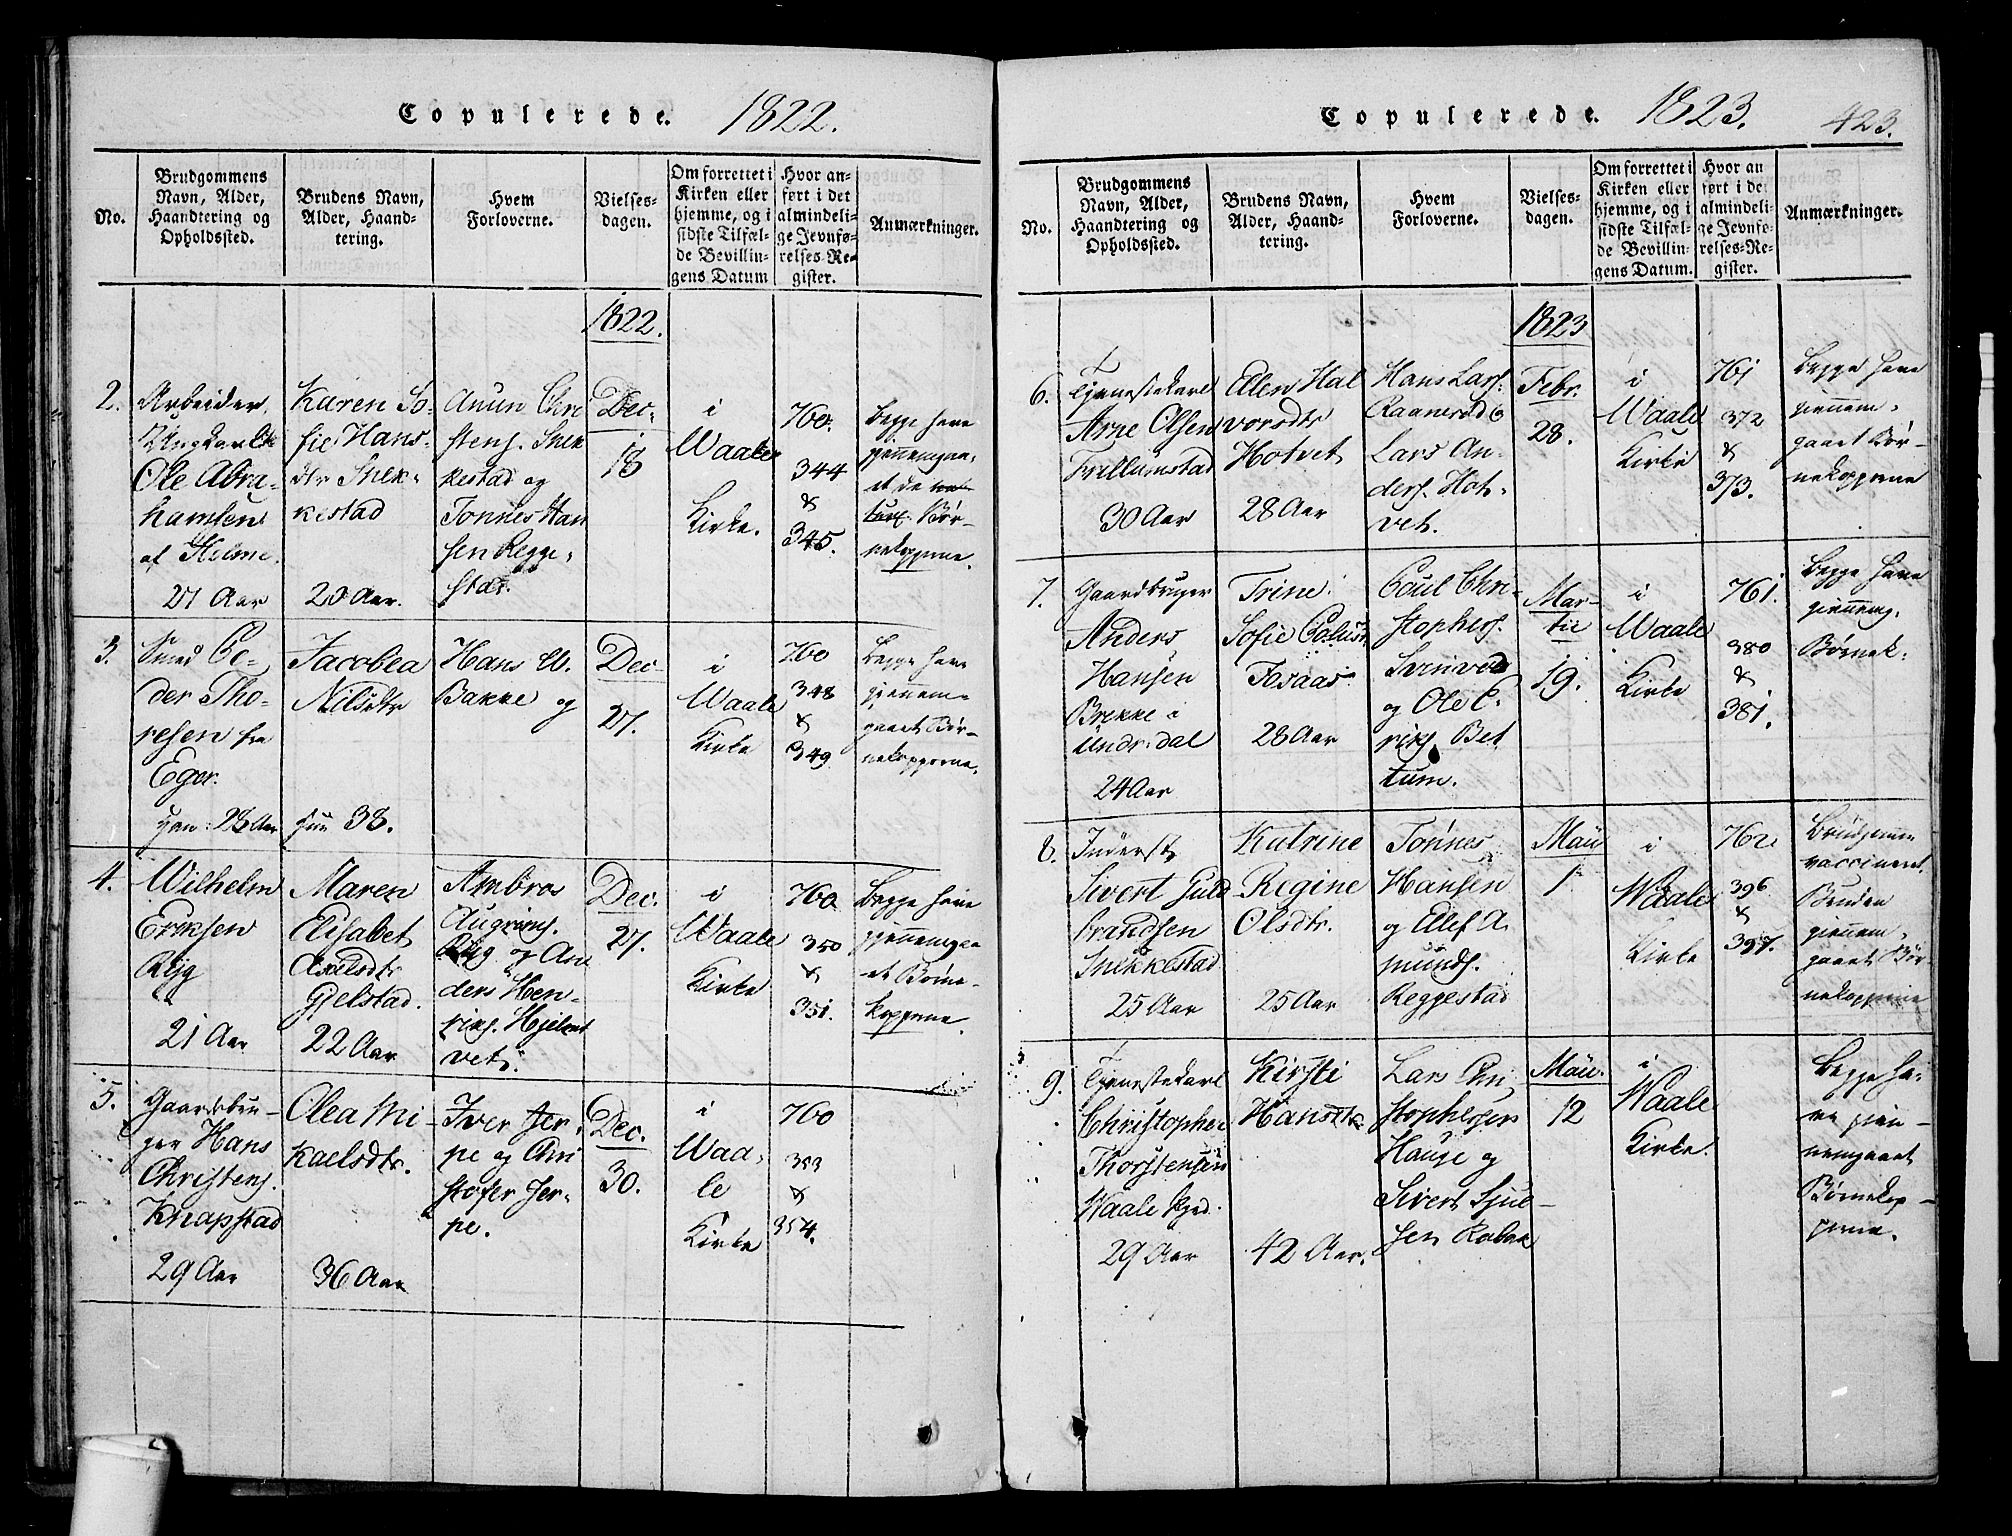 Copulerede. 1822.
No.
Brudgommens
Navn, Alder,
Haandtering og
Opholdssted.
Brudens Navn,
Alder, Haand-
tering.
Hvem
Forloverne.
Vielses-
dagen.
Om forrettet i
Kirken eller
hjemme, og i
sidste Tilfæl-
de Bevillin-
gens Datum
Hvor an-
ført i det
almindeli-
ge Jevnfø-
relses-Re-
gister.
Anmærkninger.
1822.
2.
Arbeider,
Ungkarl
Ole Abra-
hamsen
af Holme.
27 Aar
Karen So-
fie Hans-
dtr Snek-
kestad
20 Aar.
Anun Chri
stens. Snek
kestad og
Tonnes Han
sen Regge-
stad.
Dec.
18
i
Waale
Kirke.
760.
344
&
345.
Begge have
gjennemgaa-
et de
Bør-
nekopperne.
3.
Smed Pe-
der Tho-
resen fra
Eger.
han: 28 Aar
Jacobea
Nilsdtr
hun 38.
Hans W.
Bakke og
Dec
27.
i
Waale
Kirke
760
348
&
349
Begge have
gjennem-
gaaet Bør-
nekopperne.
4.
Wilhelm
Eriksen
Ryg
21 Aar
Maren
Elisabet
Axelsdtr
Gjelstad.
22 Aar
Ambros
Augrims.
Ryg og An
ders Hen-
riks. Hjelmt
vet.
Dec.
27.
i
Waale
Kirke
760
350
&
351.
Begge have
gjennemgaa
et Børne-
kopperne.
5.
Gaardbru-
ger Hans
Christens.
Knapstad
29 Aar
Olea Mi-
kaelsdtr.
36 Aar
Iver Jer-
pe og Chri
stofer Jer-
pe.
Dec.
30.
i
Waa-
le
Kirke
760
353
&
354.
Copulerede. 1823. 423.
No.
Brudgommens
Navn, Alder,
Haandtering og
Opholdssted.
Brudens Navn,
Alder, Haand-
tering.
Hvem
Forloverne.
Vielses-
dagen.
Om forrettet i
Kirken eller
hjemme, og i
sidste Tilfæl-
de Bevillin-
gens Datum.
Hvor an
ført i det
almindeli-
ge Jevnfø-
relses-Re-
gister.
Anmærkninger.
1823
6.
Tjenestekarl
Arne Olsen
Trillumstad
30 Aar
Ellen Hal
vorsdtr
Hotvet
28 Aar
Hans Lars.
Raanerud og
Lars An-
ders. Hot-
vet.
Febr.
28.
i
Waale
Kirke
761
372
&
373.
Begge have
gjennem-
gaaet Bør-
nekopperne
7.
Gaardbruger
Anders
Hansen
Brekke i
Undrsdal
24 Aar
Trine
Sofie
Fosaas
28 Aar
Poul Chri-
stophers.
og Ole E-
riks. Bet
tum.
Mar-
tii
19.
i
Waale
Kirke
761.
380
&
381.
Begge have
gjennemg.
Børnek.
8.
Inderst
Sivert Guld
brandsen
Snekkestad
25 Aar
Katrine
Regine
Olsdtr.
25 Aar
Tønnes
Hansen
og Ellef A-
munds.
Reggestad
Maii
1
i
Waale
Kirke
762
396
&
397.
Brudgommen
vaccineret.
Bruden
gjennem-
gaaet Bør-
nekopperne
9.
Tjenestekarl
Christopher
Thorstensen
Waale
29 Aar
Kirsti
Hansdtr
42 Aar.
Lars Chri
stophersen
Hauge og
Sivert Sjul-
sen
Maii.
12
i
Waale
Kirke.
Begge ha-
ve gjen-
nemgaaet
Børnekop-
perne.